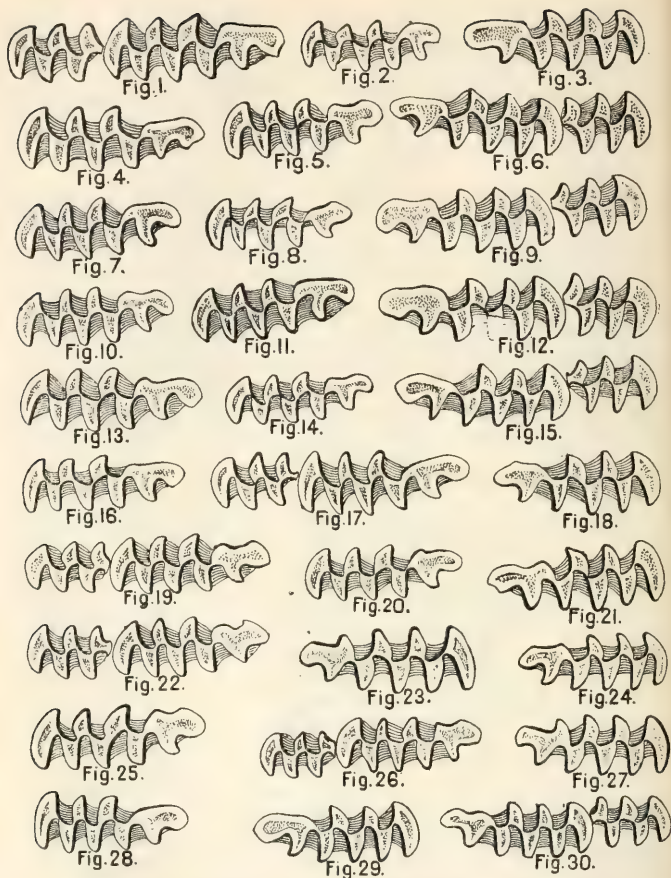 Fig.1.
Fig.2.
Fig.3.
Fig.4.
Fig.5.
Fig.6.
Fig.7.
Fig.8.
Fig.9.
Fig.10.
Fig.11.
Fig.12.
Fig.13.
Fig.14.
Fig.15.
Fig.16.
Fig.17.
Fig.18.
Fig.19.
Fig.20.
Fig.21.
Fig.22.
Fig.23.
Fig.24.
Fig.25.
Fig.26.
Fig.27.
Fig.28.
Fig.29.
Fig.30.